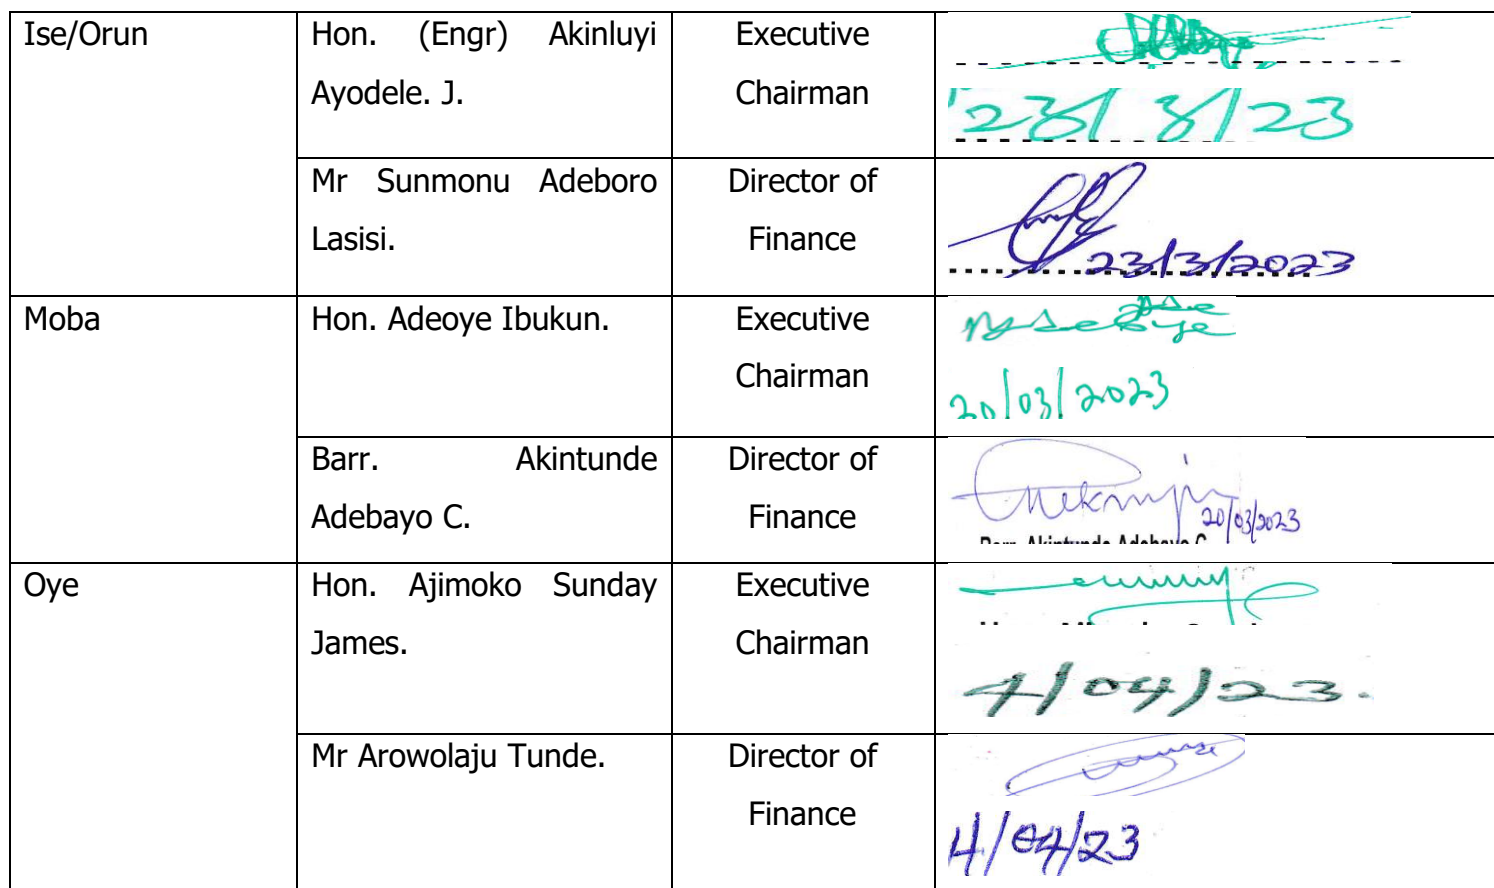 Ise/Orun
Hon. (Engr) Akinluyi
Ayodele. J.
Executive
Chairman
23/3/23
Mr Sunmonu Adeboro
Lasisi.
Director of
Finance
23/3/2023
Moba
Hon. Adeoye Ibukun.
Executive
Chairman
20/03/2023
Barr. Akintunde
Adebayo C.
Director of
Finance
20/03/2023
Barr. Akintunde Adebayo C.
Oye
Hon. Ajimoko Sunday
James.
Executive
Chairman
4/04/23.
Mr Arowolaju Tunde.
Director of
Finance
4/04/23